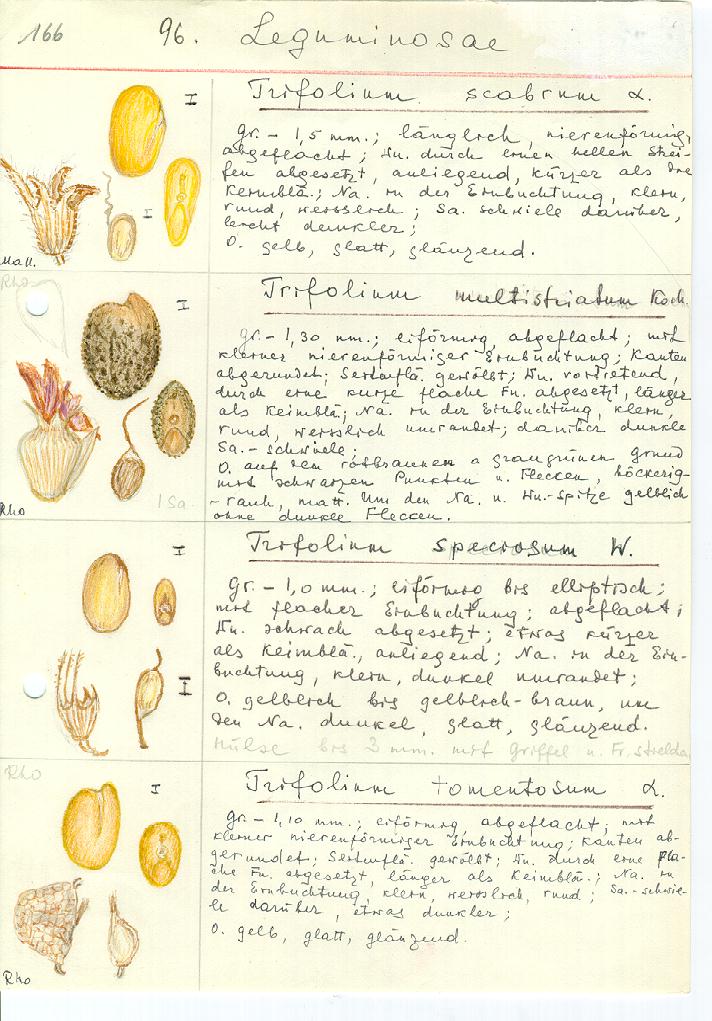 166
96. Leguminosae
Trifolium scabrum L.
Gr. - 1,5 mm.; länglich, nierenförmig,
abgeflacht; Wu. durch einen hellen Strei-
fen abgesetzt, anliegend, kürzer als die
Keimblä.; Na. in der Einbuchtung, klein,
rund, weisslich; Sa. schwiele darüber,
leicht dunkler;
O. gelb, glatt, glänzend.
Mall.
Rho
Trifolium multistriatum Koch.
Gr. - 1,30 mm.; eiförmig, abgeflacht; mit
kleiner nierenförmiger Einbuchtung; Kanten
abgerundet; Seitenflä. gewölbt; Wu. vortretend,
durch eine kurze flache Fu. abgesetzt, länger
als Keimblä.; Na. in der Einbuchtung, klein,
rund, weisslich umrandet; darüber dunkle
Sa. - schwiele;
O. auf dem rötbraunen o graugrünen Grund
mit schwarzen Punkten u. Flecken, höckerig-
- rauh, matt. Um den Na. u. Wu.-spitze gelblich
ohne dunkle Flecken.
Rho
1 Sa.
Trifolium speciosum W.
Gr. - 1,0 mm.; eiförmig bis elliptisch;
mit flacher Einbuchtung; abgeflacht;
Wu. schwach abgesetzt; etwas kürzer
als Keimblä., anliegend; Na. in der Ein-
buchtung, klein, dunkel umrandet;
O. gelblich bis gelblich-braun, um
den Na. dunkel, glatt, glänzend.
Hülse bis 3 mm. mit Griffel u. Fr.
Rho
Trifolium tomentosum L.
Gr. - 1,10 mm.; eiförmig, abgeflacht, mit
kleiner nierenförmiger Einbuchtung; Kanten ab-
gerundet; Seitenflä. gewölbt; Wu. durch eine fla-
che Fu. abgesetzt, länger als Keimblä.; Na. in
der Einbuchtung, klein, weisslich, rund; Sa.-schwie-
le darüber, etwas dunkler;
O. gelb, glatt, glänzend.
Rho